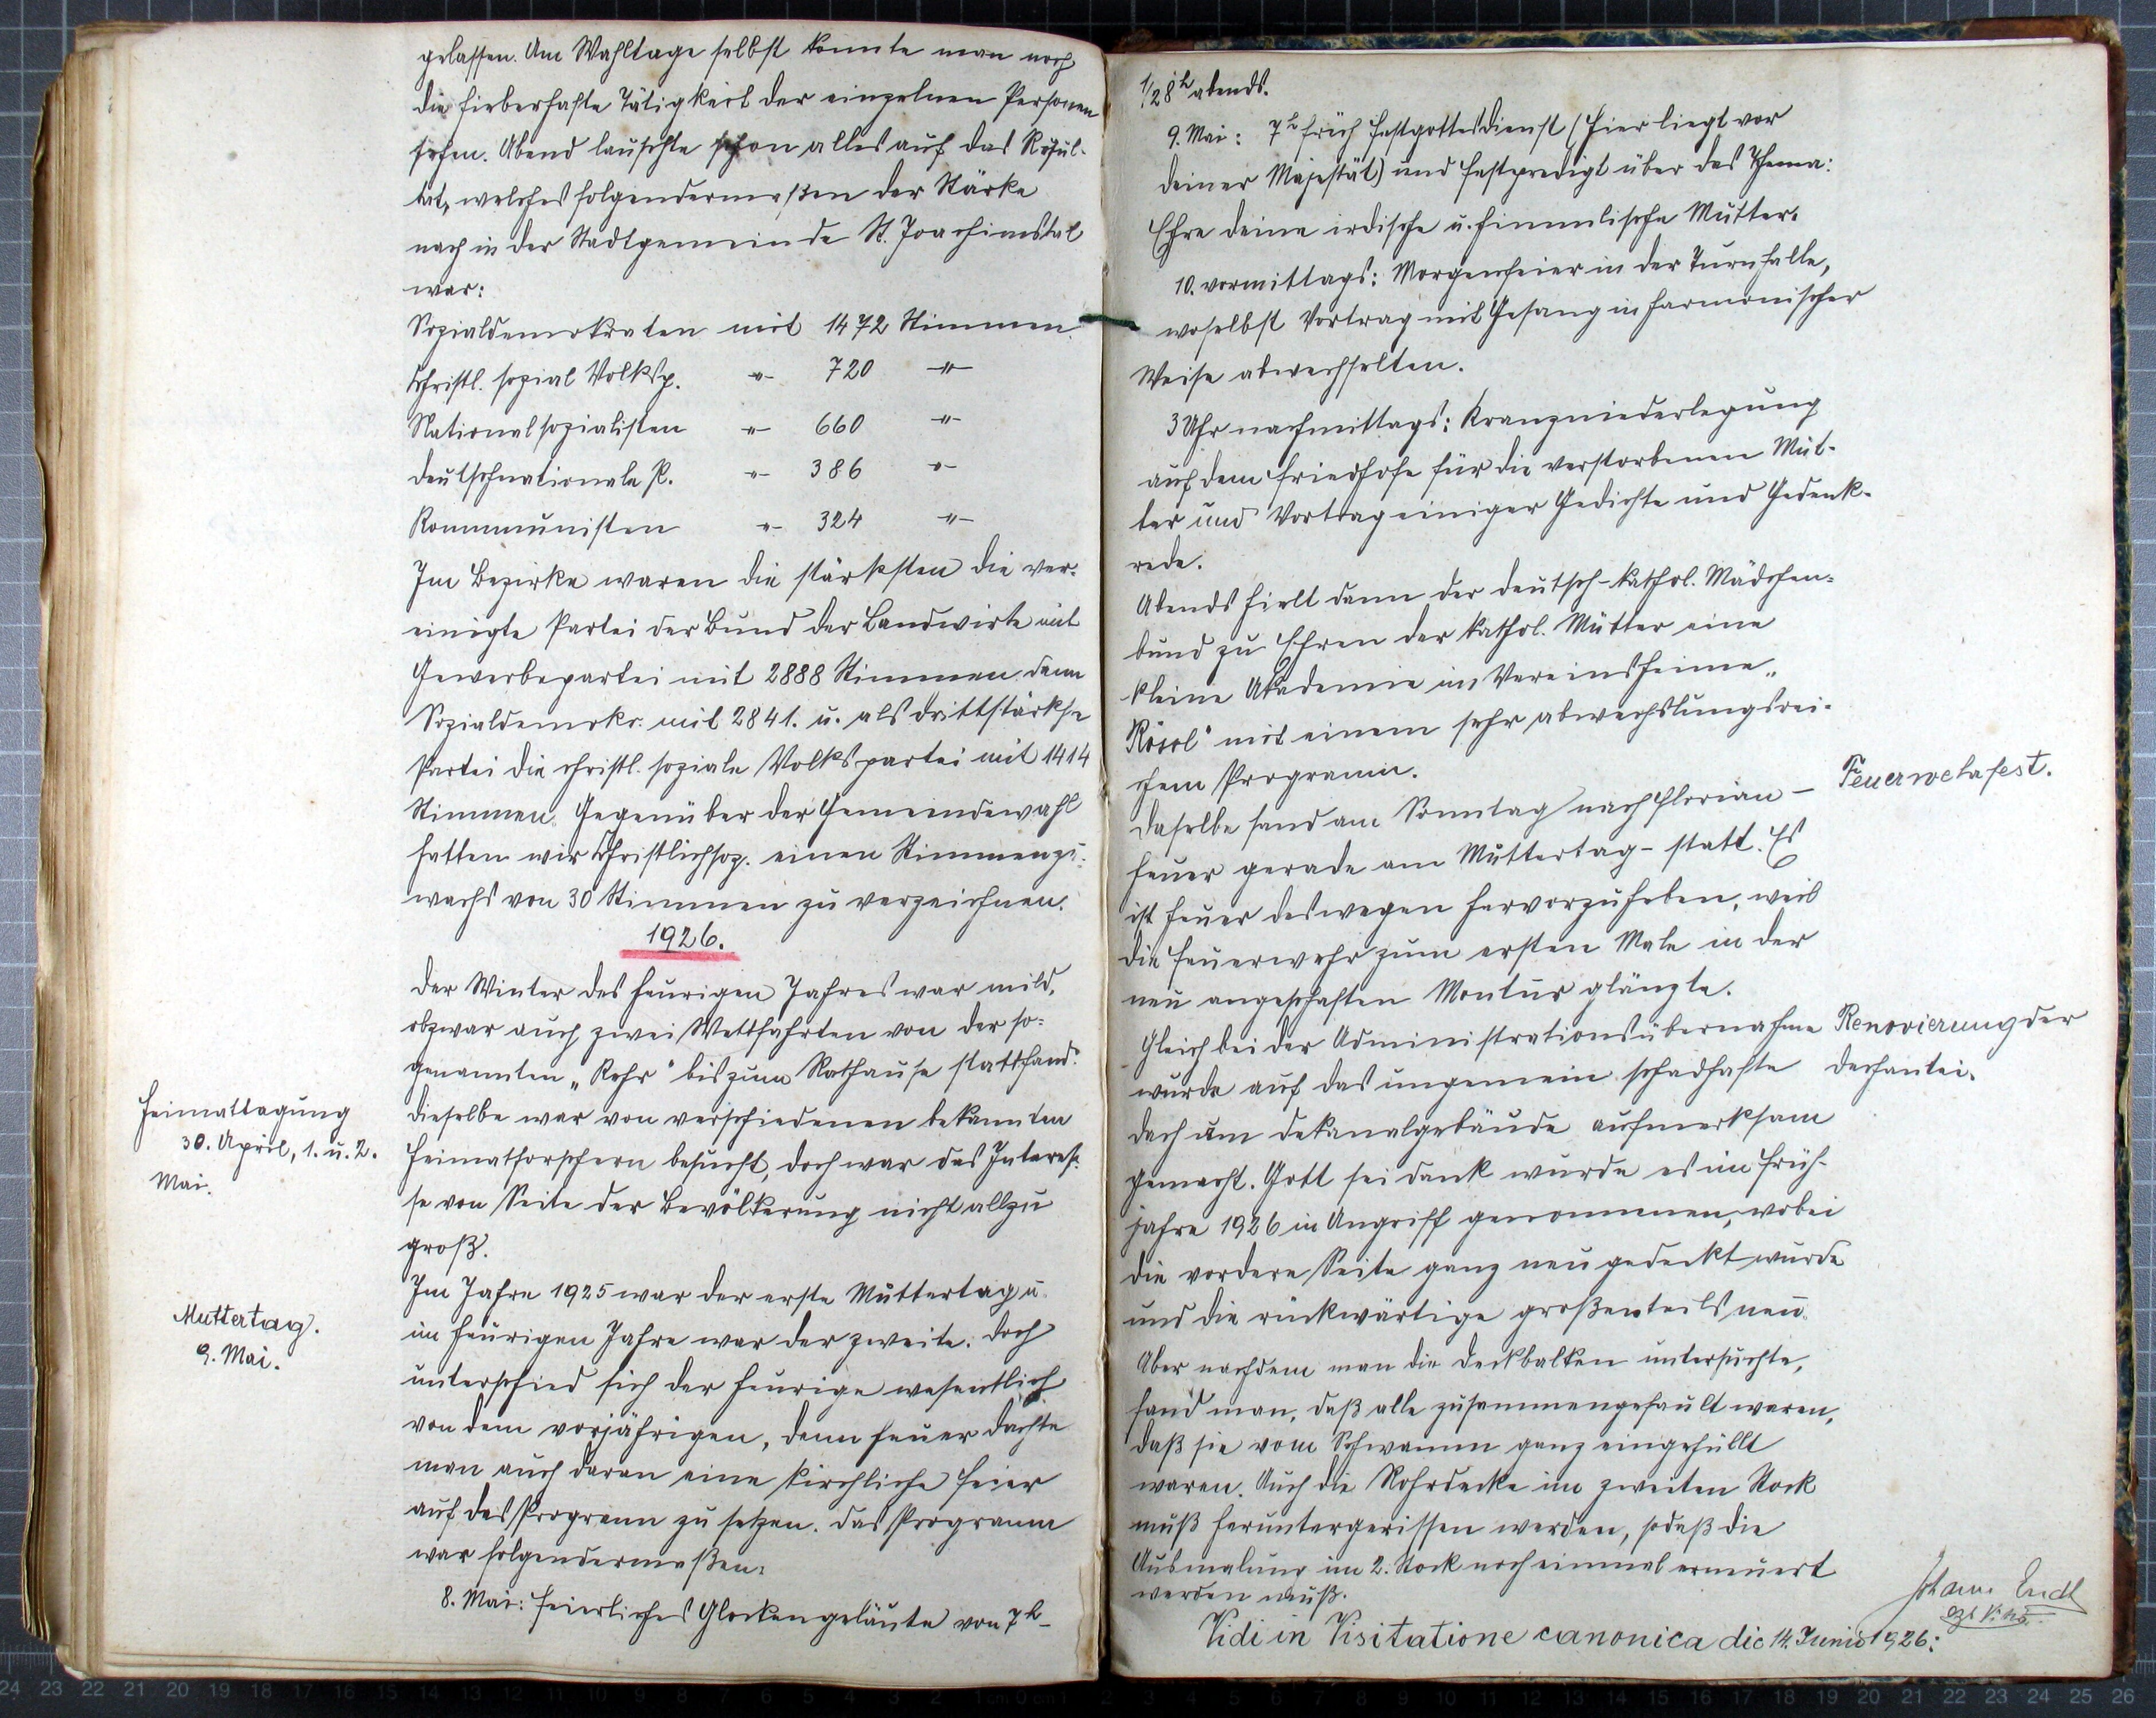 gelassen. Am Wahltage selbst konnte man noch
die fieberhafte Tätigkeit der einzelnen Personen
sehen. Abend lauschte schon alles auf das Resul-
tat, welches folgendermaßen der Stärke
nach in der Stadtgemeinde St. Joachimstal
war:
Sozialdemokraten mit 1472 Stimmen.
Christl. sozial Volksp. -"- 720 -"-
Nationalsozialisten -"- 660 -"-
Deutschnationale P. -"- 386 -"-
Kommunisten -"- 324 -"-
Im Bezirke waren die stärksten die ver-
einigte Partei der Bund der Landwirte mit
Gewerbepartei mit 2888 Stimmen, dann
Sozialdemokr. mit 2841. u. als drittstärkste
Partei die christl. soziale Volkspartei mit 1414
Stimmen. Gegenüber der Gemeindewahl
hatten wir Christlichsoz. einen Stimmenzu-
wachs von 30 Stimmen zu verzeichnen.
1926.
Der Winter des heurigen Jahres war mild,
obzwar auch zwei Wettfahrten von der so-
genannten „Kehr" bis zum Rathause stattfand.
Heimattagung
30. April, 1. u. 2.
Mai.
Dieselbe war von verschiedenen bekannten
Heimatforschern besucht, doch war das Interes-
se von Seite der Bevölkerung nicht allzu
groß.
Muttertag.
9. Mai.
Im Jahre 1925 war der erste Muttertag u.
im heurigen Jahre war der zweite. Doch
unterschied sich der heurige wesentlich
von dem vorjährigen, denn heuer dachte
man auch daran eine kirchliche Feier
auf das Programm zu setzen. Das Programm
war folgendermaßen:
8. Mai: feierliches Glockengeläute von 7h-
1/28h abends.
9. Mai: 7h früh Festgottesdienst (Hier liegt vor
deiner Majestät) und Festpredigt über das Thema:
Ehre deine irdische u. himmlische Mutter.
10. vormittags: Morgenfeier in der Turnhalle,
woselbst Vortrag mit Gesang in harmonischer
Weise abwechselten.
3 Uhr nachmittags: Kranzniederlegung
auf dem Friedhofe für die verstorbenen Müt-
ter und Vortrag einiger Gedichte und Gedenk-
rede.
Abends hielt dann der deutsch-kathol. Mädchen-
bund zu Ehren der kathol. Mütter eine
kleine Akademie im Vereinsheime „
Rösel" mit einem sehr abwechslungsrei-
chem Programm.
Feuerwehrfest.
Daselbe fand am Sonntag nach Florian –
heuer gerade am Muttertag – statt. Es
ist heuer deswegen hervorzuheben, weil
die Feuerwehr zum ersten Male in der
neu angeschaften Montur glänzte.
Renovierung der
Dechantei.
Gleich bei der Administrationsübernahme
wurde auf das ungemein schadhafte
Dach am Dekanalgebäude aufmerksam
gemacht. Gott sei dank wurde es im Früh-
jahre 1926 in Angriff genommen, wobei
die vordere Seite ganz neu gedeckt wurde
und die rückwärtige großenteils neu.
Aber nachdem man die Deckbalken untersuchte,
fand man, daß alle zusammengefault waren,
daß sie vom Schwamm ganz eingehüllt
waren. Auch die Rohrdecke im zweiten Stock
muß heruntergerissen werden, sodaß die
Ausmalung im 2. Stock noch einmal erneuert
werden muß.
Vidi in Visitatione canonica die 14. Junio 1926:
Johann Endt
24 23 22 21 20 19 18 17 16 15 14 13 12 11 10 9 8 7 6 5 4 3 2 1 cm 0 cm 1 2 3 4 5 6 7 8 9 10 11 12 13 14 15 16 17 18 19 20 21 22 23 24 25 26